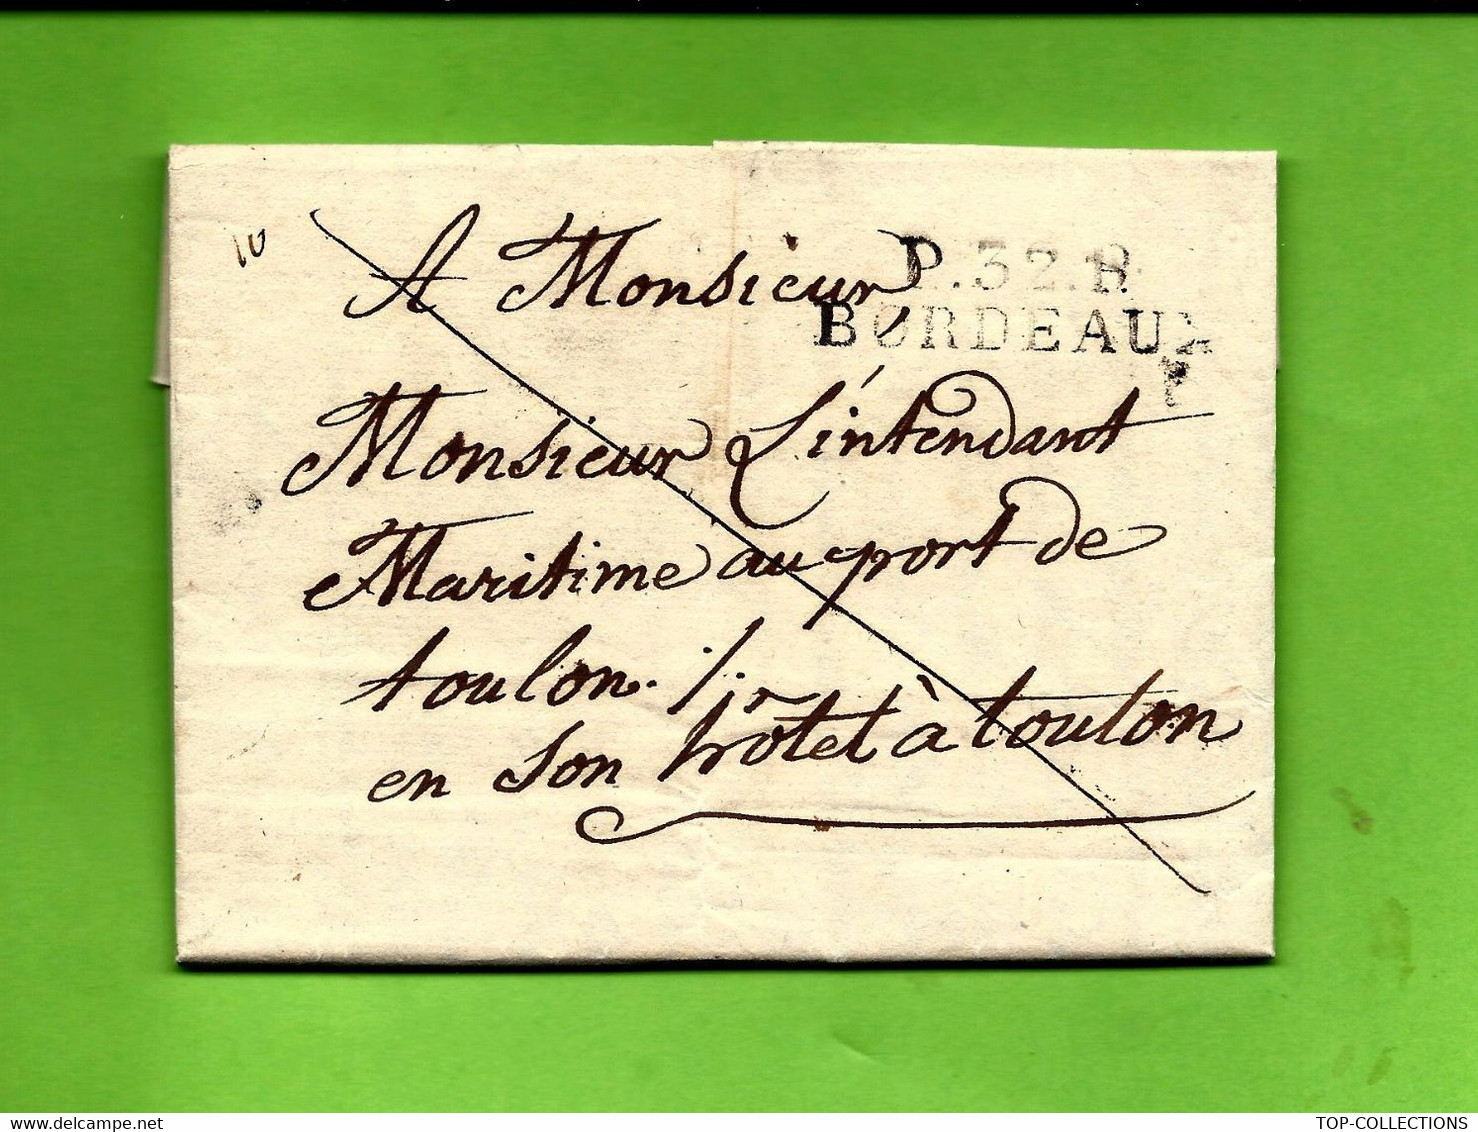 10
A Monsieur,
P.32.B.
BORDEAUX
Monsieur L'intendant
Maritime au port de
toulon. /.
en son hôtel à toulon
delcampe.net
TOP-COLLECTIONS